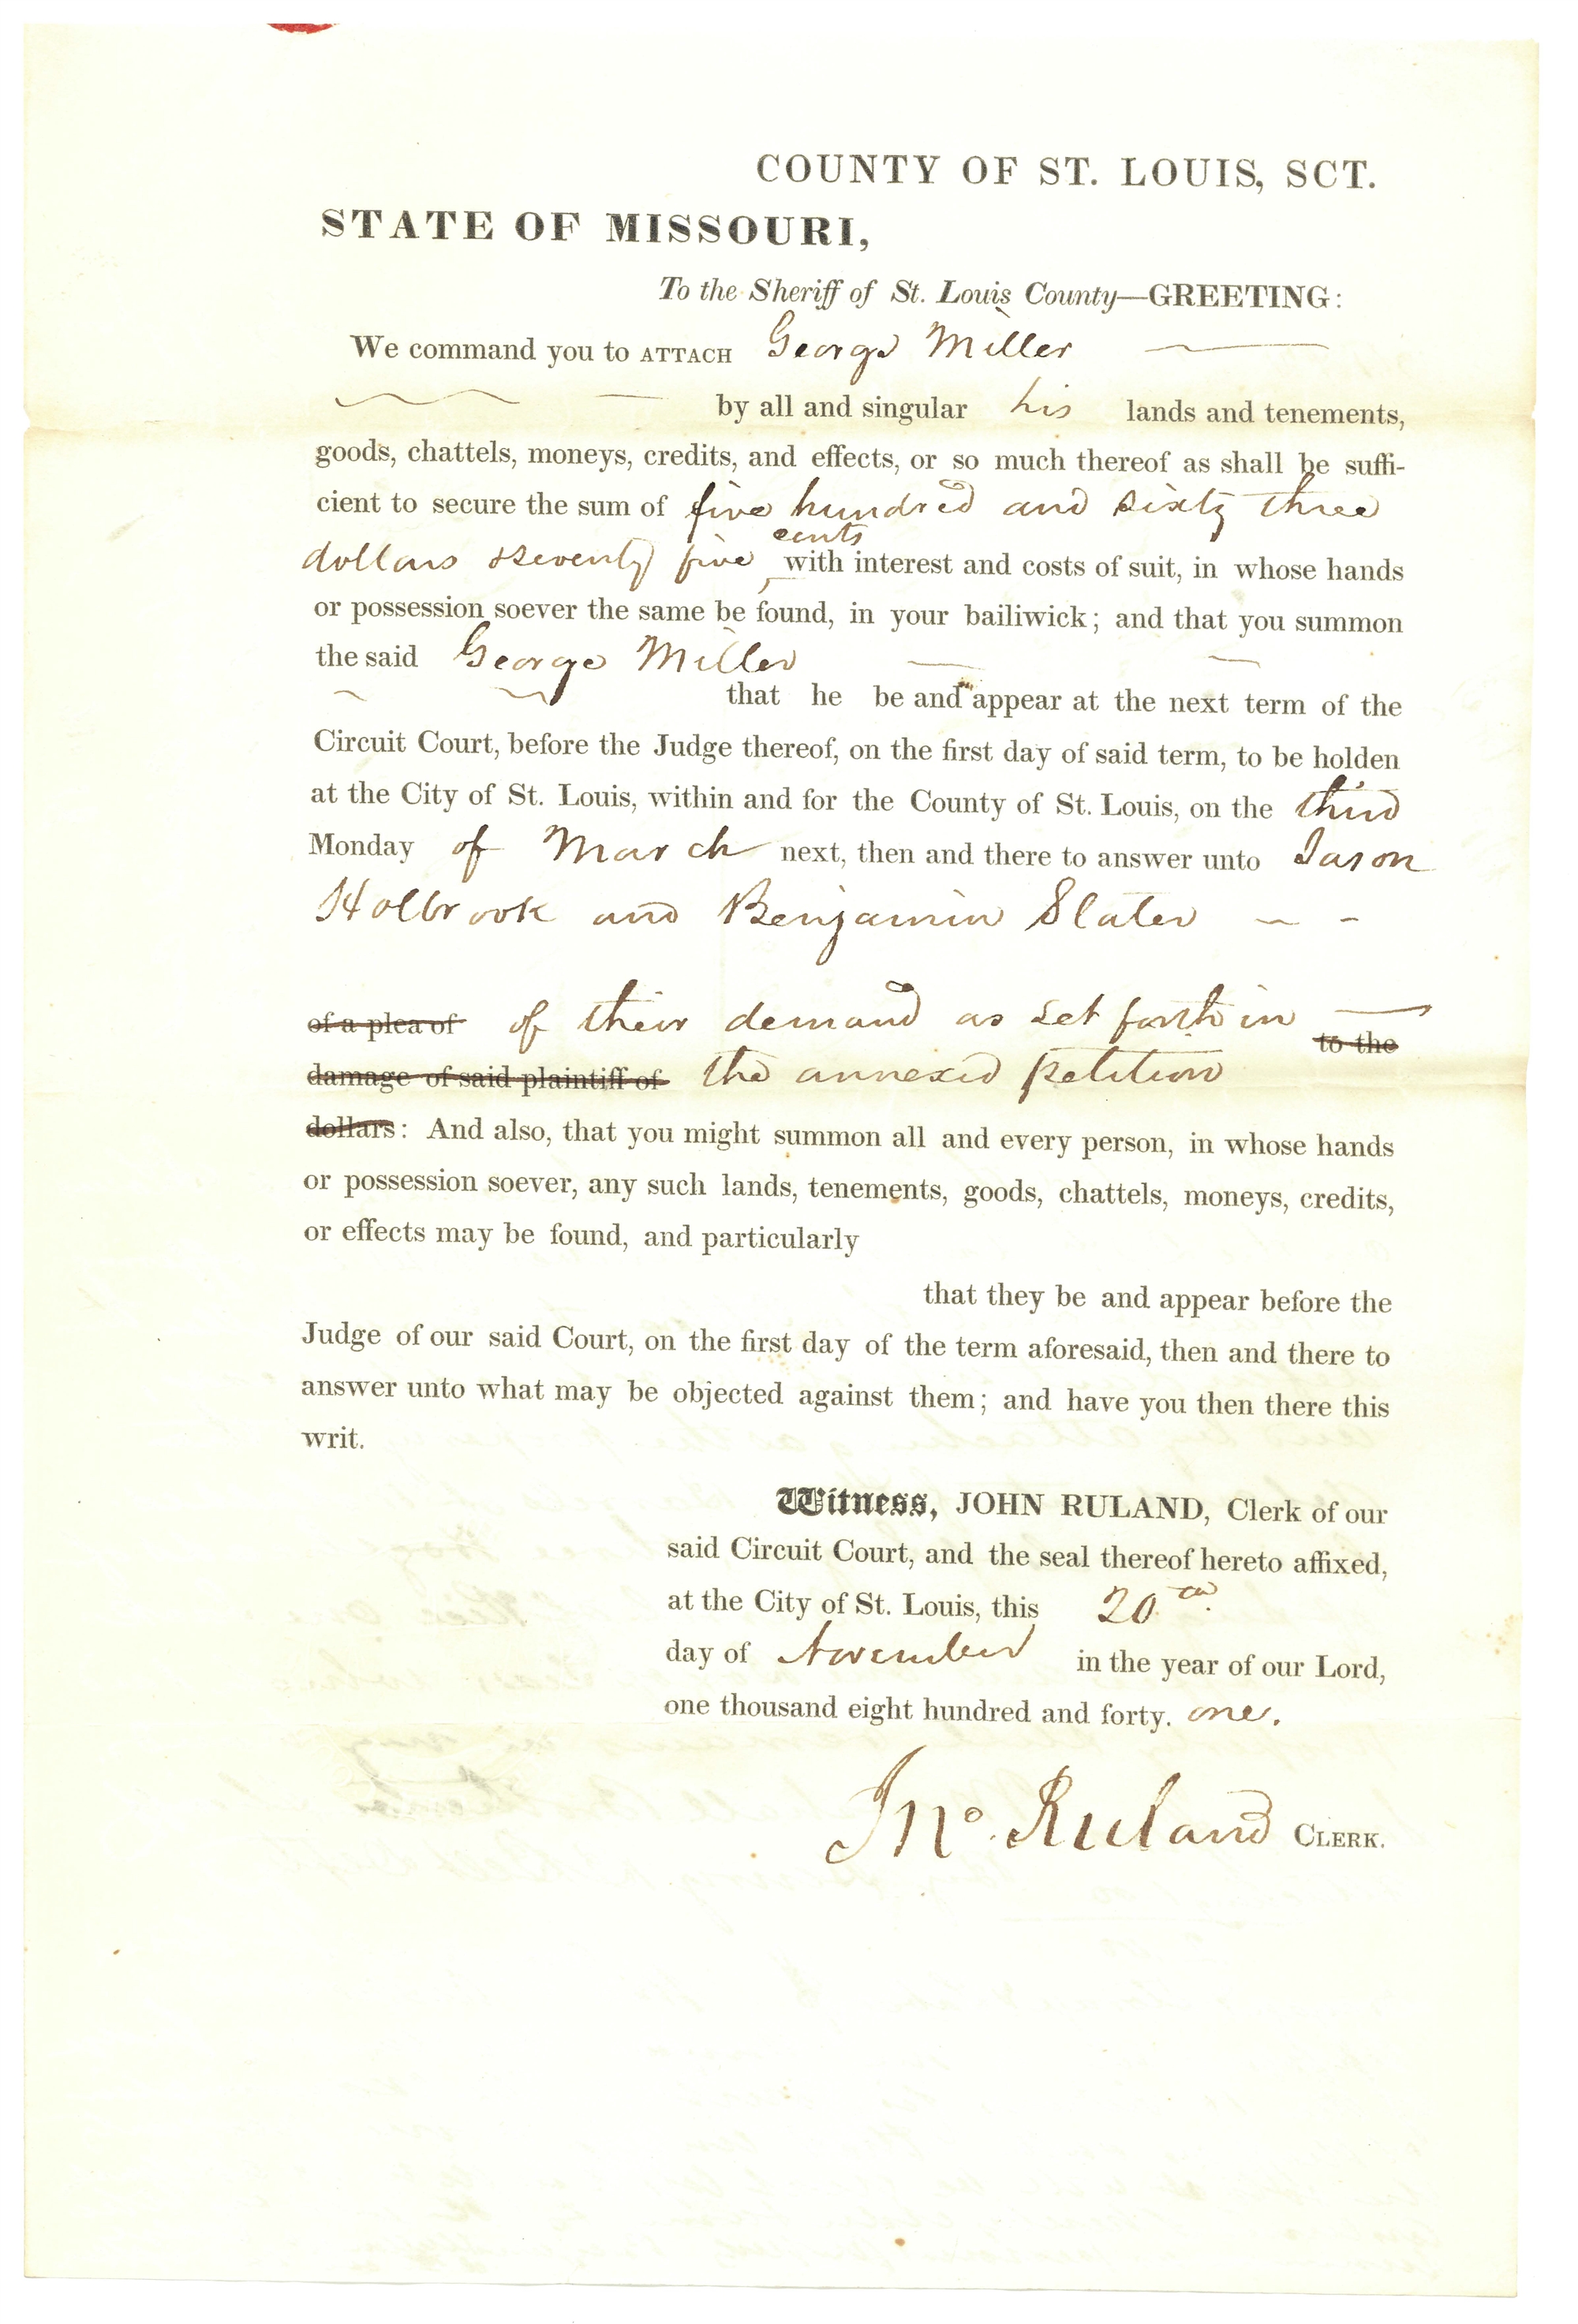 COUNTY OF ST. LOUIS, SCT.
STATE OF MISSOURI,
To the Sheriff of St. Louis County—GREETING:
We command you to ATTACH George Miller
by all and singular his lands and tenements,
goods, chattels, moneys, credits, and effects, or so much thereof as shall be suffi-
cient to secure the sum of five hundred and sixty three
cents
dollars & seventy five with interest and costs of suit, in whose hands
or possession soever the same be found, in your bailiwick; and that you summon
the said George Miller
that he be and appear at the next term of the
Circuit Court, before the Judge thereof, on the first day of said term, to be holden
at the City of St. Louis, within and for the County of St. Louis, on the third
Monday of March next, then and there to answer unto Jason
Holbrook and Benjamin Slater
of a plea of of their demand as set forth in to the
damage of said plaintiff of the annexed petition
dollars: And also, that you might summon all and every person, in whose hands
or possession soever, any such lands, tenements, goods, chattels, moneys, credits,
or effects may be found, and particularly
that they be and appear before the
Judge of our said Court, on the first day of the term aforesaid, then and there to
answer unto what may be objected against them; and have you then there this
writ.
Witness, JOHN RULAND, Clerk of our
said Circuit Court, and the seal thereof hereto affixed,
at the City of St. Louis, this 20th
day of November in the year of our Lord,
one thousand eight hundred and forty. one.
Jno. Ruland CLERK.